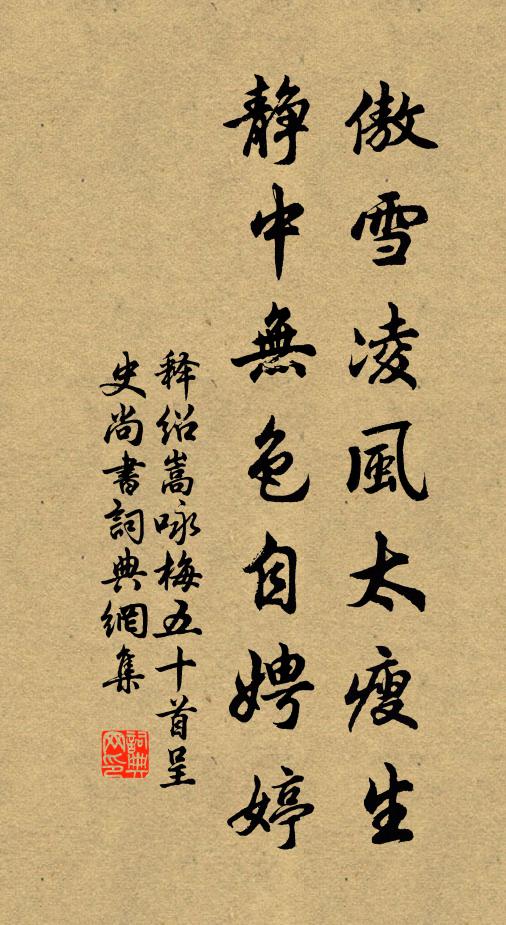 傲雪凌風太瘦生
静中無色自娉婷
释绍嵩咏梅五十首呈
史尚書詞典網集
詞典
网印